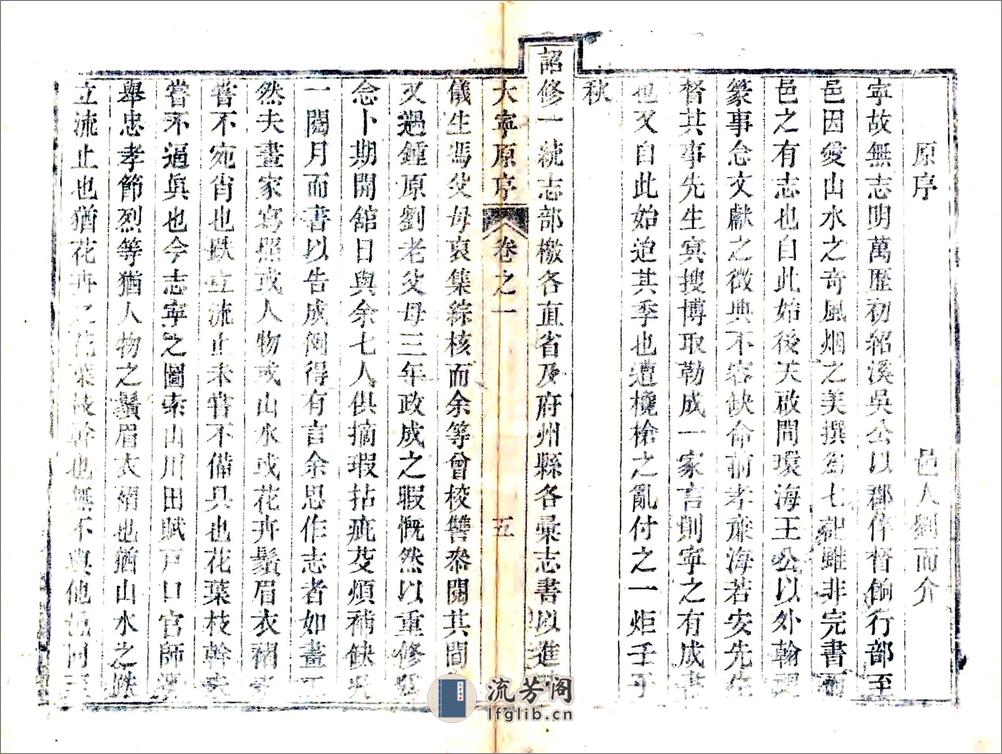 原序
邑人劉而介
寧故無志明萬歷初紹溪吳公以郡倅督餉行部至
邑因愛山水之奇風烟之美撰爲七紀雖非完書而
邑之有志也自此始後天啟間環海王公以外翰
篆事念文獻之徵典不容缺命前孝廉海若安先生
督其事先生冥搜博取勒成一家言則寧之有成書
也又自此始迨其季也遭欃槍之亂付之一炬壬子
秋
詔修一統志部檄各直省及府州縣各彙志書以進
大寧原序 卷之一 五
儀生馮父母裒集綜核而余等曾校讐叅閱其間
又遇鍾原劉老父母三年政成之暇慨然以重修
念卜期開舘日與余七人供摘瑕拈疵芟煩補缺
一閱月而書以告成例得有言余思作志者如畫
然夫畫家寫照或人物或山水或花卉鬚眉衣褶
嘗不宛肖也跌立流止未嘗不備具也花葉枝幹
嘗不逼眞也今志寧之圖索山川田賦戸口官師
舉忠孝節烈等猶人物之鬚眉衣褶也猶山水之跌
立流止也猶花卉之花葉枝幹也無不眞他
流芳阁
lfglib.cn